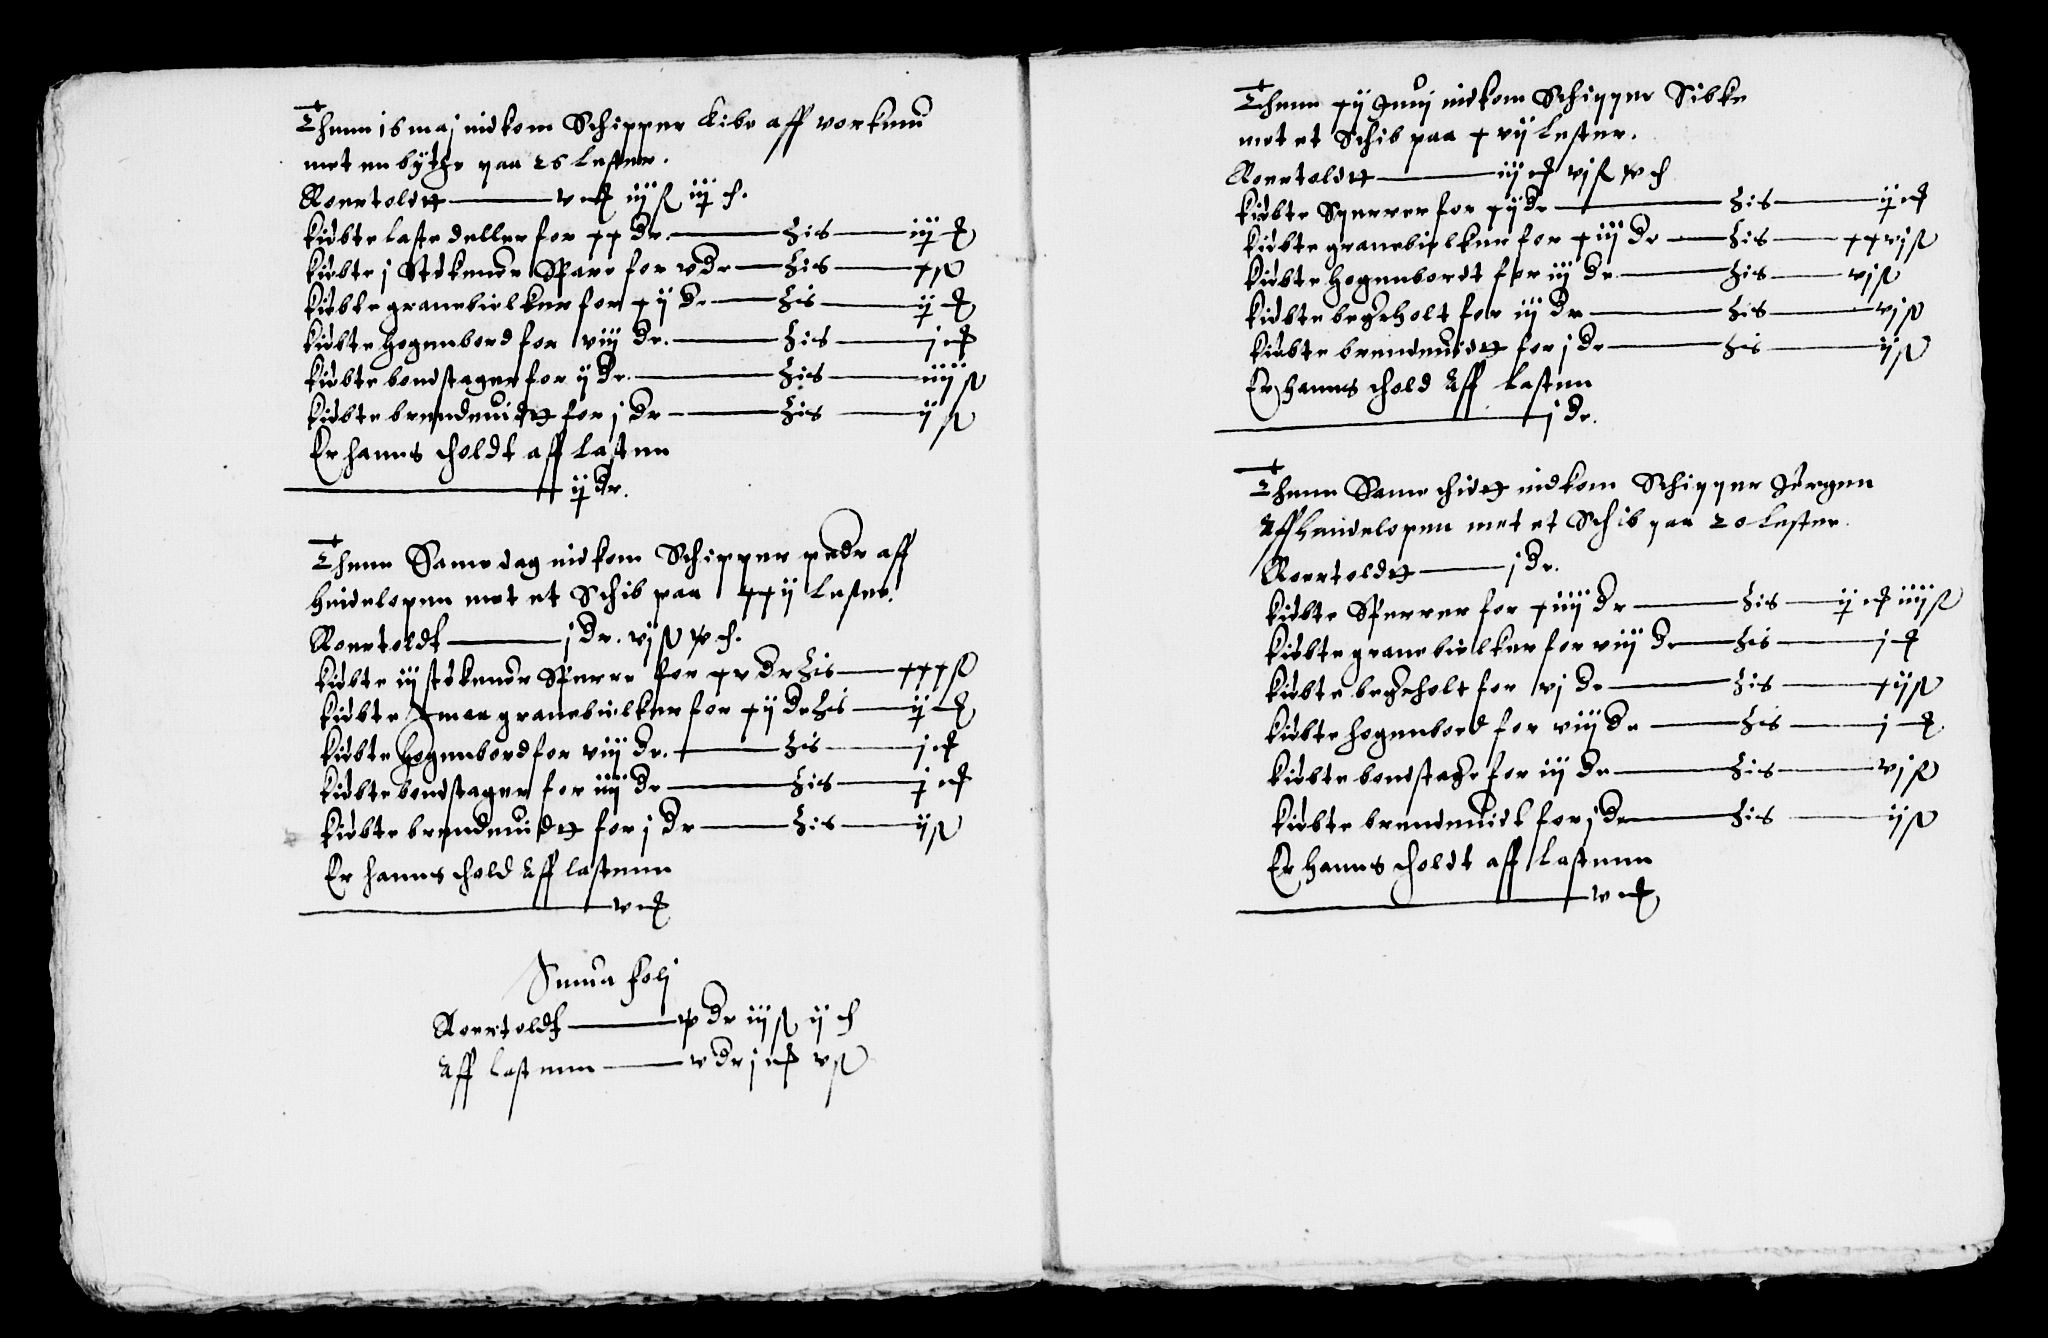 Thenn 16 maj indkom Schipper Kibe aff workum
met en bÿthe paa 26 lester.
Roertoldt — v ort iij ß iij ch.
kiøbte laste deller for xx dr. — his — iij ort
kiøbte j Stikende Spare for v dr — his — x ß
kiøbte granebielker for xij dr — his — ij ort
kiøbte hogenbord for viij dr. — his — j ort
kiøbte bondstager for ij dr. — his — iiij ß
kiøbte brendeuidt for j dr — his — ij ß
Er hanns thold t aff lasten
— ij dr.
Thenn Same dag indkom Schipper pedr aff
heidelopen met et Schib paa xxij lester.
Roertoldt — j dr. vj ß ch.
kiøbte iij stikende Sperre for xv dr his — xxx ß
kiøbte maa granebielker for xij dr his — ij ort
kiøbte hogenbord for viij dr. — his — j ort
kiøbte bondstager for iiij dr — his — j ort
kiøbte brendeuidt for j dr — his — ij ß
Er hanns thold Aff lastenn
— v ort
Suma folj
Roertoldt — dr iij ß ij ch
Aff lastenn — v dr j ort v ß
Thenn xij Junij indkom Schipper Sibke
met et Schib paa xvij lester.
Roertoldt — iij ort vj ß ch
kiøbte Sperrer for xij dr — his — ij ort
kiøbte granebielker for xiij dr — his — xxvj ß
kiøbte hogenbordt for iij dr. — his — vj ß
kiøbte begeholt for iij dr — his — vj ß
kiøbte brendeuidt for j dr — his — ij ß
Er hanns thold Aff lasten
— j dr.
Thenn Same thidt indkom Schipper Jürgen
Aff heidelopen met et Schib paa 20 lester.
Roertoldt — j dr.
kiøbte Sperrer for xiiij dr — his — ij ort iiij ß
kiøbte granebielker for viij dr — his — j ort
kiøbte begeholt for vj dr — his — xij ß
kiøbte hogenbord for viij dr — his — j ort
kiøbte bondstage for iij dr — his — vj ß
kiøbte brendeuidt for j dr — his — ij ß
Er hanns tholdt aff lastenn
— v ort